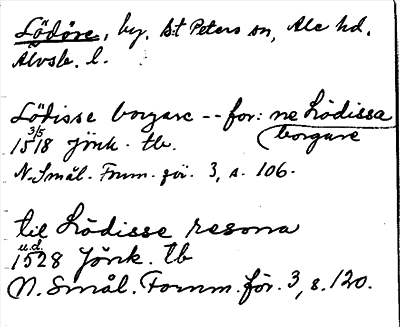 Lödöse, by, S:t Peters sn, Ale hd,
Älvsb. l.
Lödisse borgare -- for: ne Lödissa
borgare
3/5
1518 Jönk. tb.
N. Smål. Fornm. för. 3, s. 106.
til Lödisse resona
u.d.
1528 Jönk. tb
N. Smål. Fornm. för. 3, s. 120.